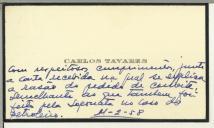 CARLOS TAVARES
Com respeitosos cumprimentos, junto
a carta recebida na qual se explica
a razão do pedido de convite
semelhante ao que também foi
feito pela Deputada no caso do
Petroleiro.
21-2-58